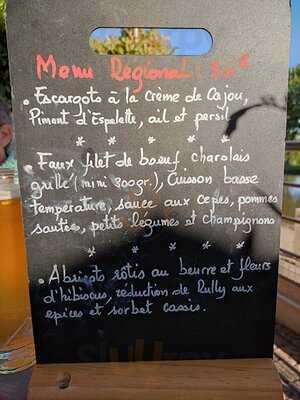 Menu Régional : 30€
. Escargots à la Crème de Cajou,
Piment d'Espelette, ail et persil
* * * * *
. Faux filet de bœuf charolais
grillé (mini 300gr.), Cuisson basse
température, sauce aux cèpes, pommes
sautées, petits légumes et champignons
* * * * *
. Abricots rôtis au beurre et fleurs
d'hibiscus, réduction de Rully aux
épices et sorbet cassis.